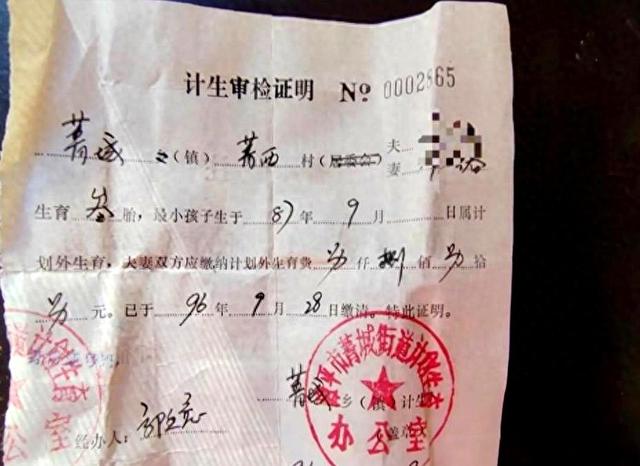 计生审检证明 № 0002865
菁城 乡(镇) 菁西 村(居委会) 夫
妻
生育 叁 胎,最小孩子生于 87 年 9 月 日属计
划外生育,夫妻双方应缴纳计划外生育费 仟 捌 佰 拾
元。已于 96 年 9 月 28 日缴清。特此证明。
菁城 乡(镇)计生
经办人:
盖章
市菁城街道计划生育
办公室